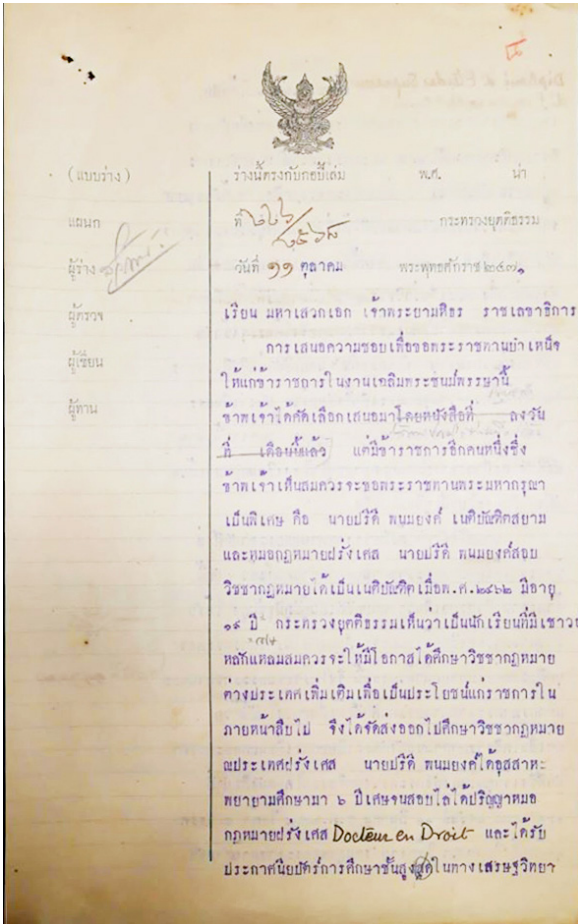 (แบบร่าง)
ร่างนี้ตรงกับกอปี้เล่ม พ.ศ. น่า
แผนก
ที่ ๒๒๖/ กระทรวงยุตติธรรม
ผู้ร่าง
วันที่ ๑๑ ตุลาคม พระพุทธศักราช ๒๔๗๑
ผู้ตรวจ
เรียน มหาเสวกเอก เจ้าพระยามหิธร ราชเลขาธิการ
การเสนอความชอบเพื่อขอพระราชทานบำเหน็จ
ผู้เขียน
ให้แก่ข้าราชการในงานเฉลิมพระชนม์พรรษานี้
ผู้ทาน
ข้าพเจ้าได้คัดเลือกเสนอมาโดยหนังสือที่ ลงวัน
ที่ เดือนนี้แล้ว แต่มีข้าราชการอีกคนหนึ่งซึ่ง
ข้าพเจ้าเห็นสมควรจะขอพระราชทานพระมหากรุณา
เป็นพิเศษ คือ นายปรีดี พนมยงค์ เนติบัณฑิตสยาม
และหมอกฎหมายฝรั่งเศส นายปรีดี พนมยงค์สอบ
วิชชากฎหมายได้เป็นเนติบัณฑิตเมื่อพ.ศ.๒๔๖๒ มีอายุ
๑๙ ปี กระทรวงยุตติธรรมเห็นว่าเป็นนักเรียนที่มีเชาวน
หลักแหลมสมควรจะให้มีโอกาสได้ศึกษาวิชชากฎหมาย
ต่างประเทศเพิ่มเติมเพื่อเป็นประโยชน์แก่ราชการใน
ภายหน้าสืบไป จึงได้จัดส่งออกไปศึกษาวิชชากฎหมาย
ณประเทศฝรั่งเศส นายปรีดี พนมยงค์ได้อุสสาหะ
พยายามศึกษามา ๖ ปีเศษจนสอบไล่ได้ปริญญาหมอ
กฎหมายฝรั่งเศส Docteur en Droit และได้รับ
ประกาศนียบัตร์การศึกษาชั้นสูงสุดในทางเสรษฐวิทยา